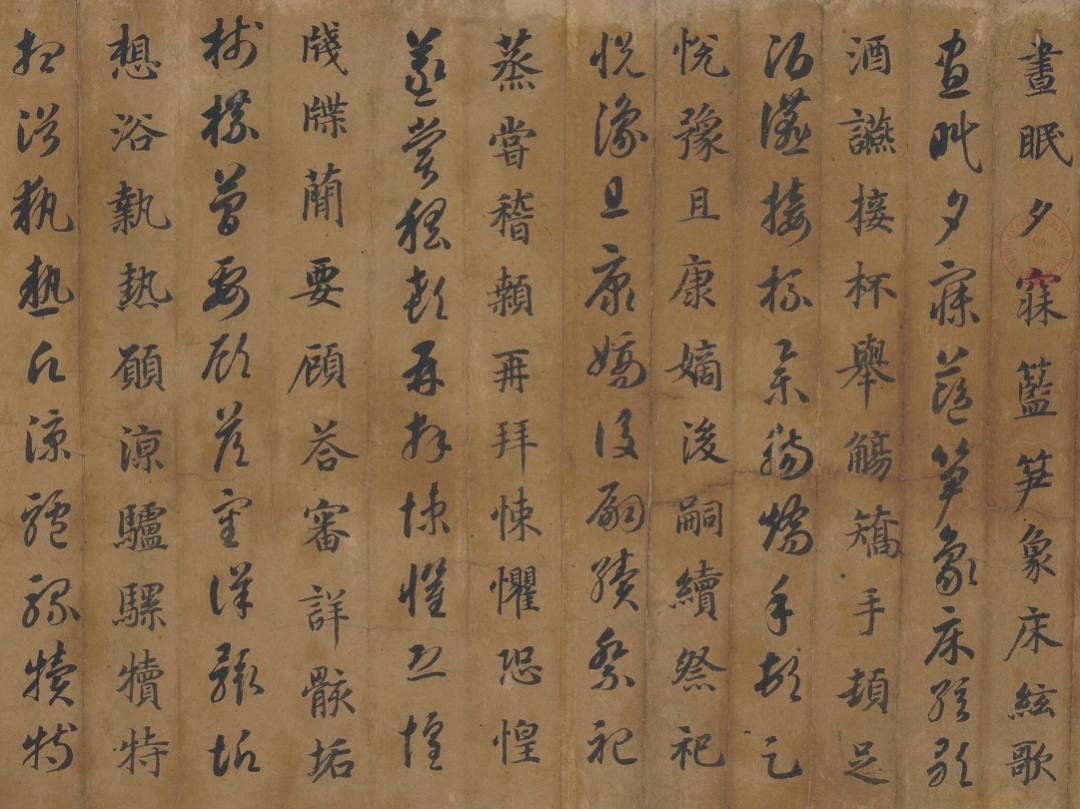 晝眠夕寐籃笋象床絃歌
晝眠夕寐籃笋象床絃歌
酒讌接杯舉觴矯手頓足
酒讌接杯舉觴矯手頓足
悅豫且康嫡後嗣續祭祀
悅豫且康嫡後嗣續祭祀
蒸嘗稽顙再拜悚懼恐惶
蒸嘗稽顙再拜悚懼恐惶
牋牒蕳要顧荅審詳骸垢
牋牒蕳要顧荅審詳骸垢
想浴執熱願涼驢騾犢特
想浴執熱願涼驢騾犢特